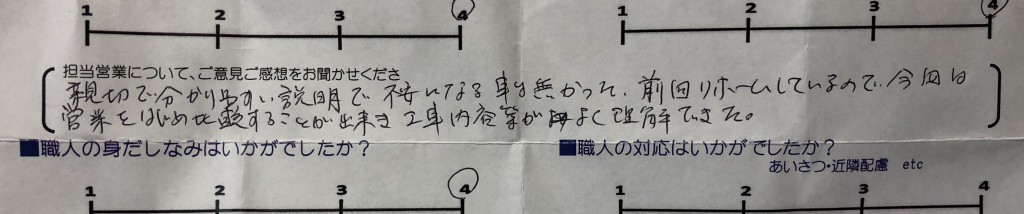 1 2 3 4 1 2 3 4
担当営業について、ご意見ご感想をお聞かせくださ
親切で分かりやすい説明で不安になる事も無かった。前回リホームしているので、今回は
営業をはじめ することが出来き工事内容等が よく理解できた。
■職人の身だしなみはいかがでしたか? ■職人の対応はいかがでしたか?
あいさつ・近隣配慮 etc
1 2 3 4 1 2 3 4